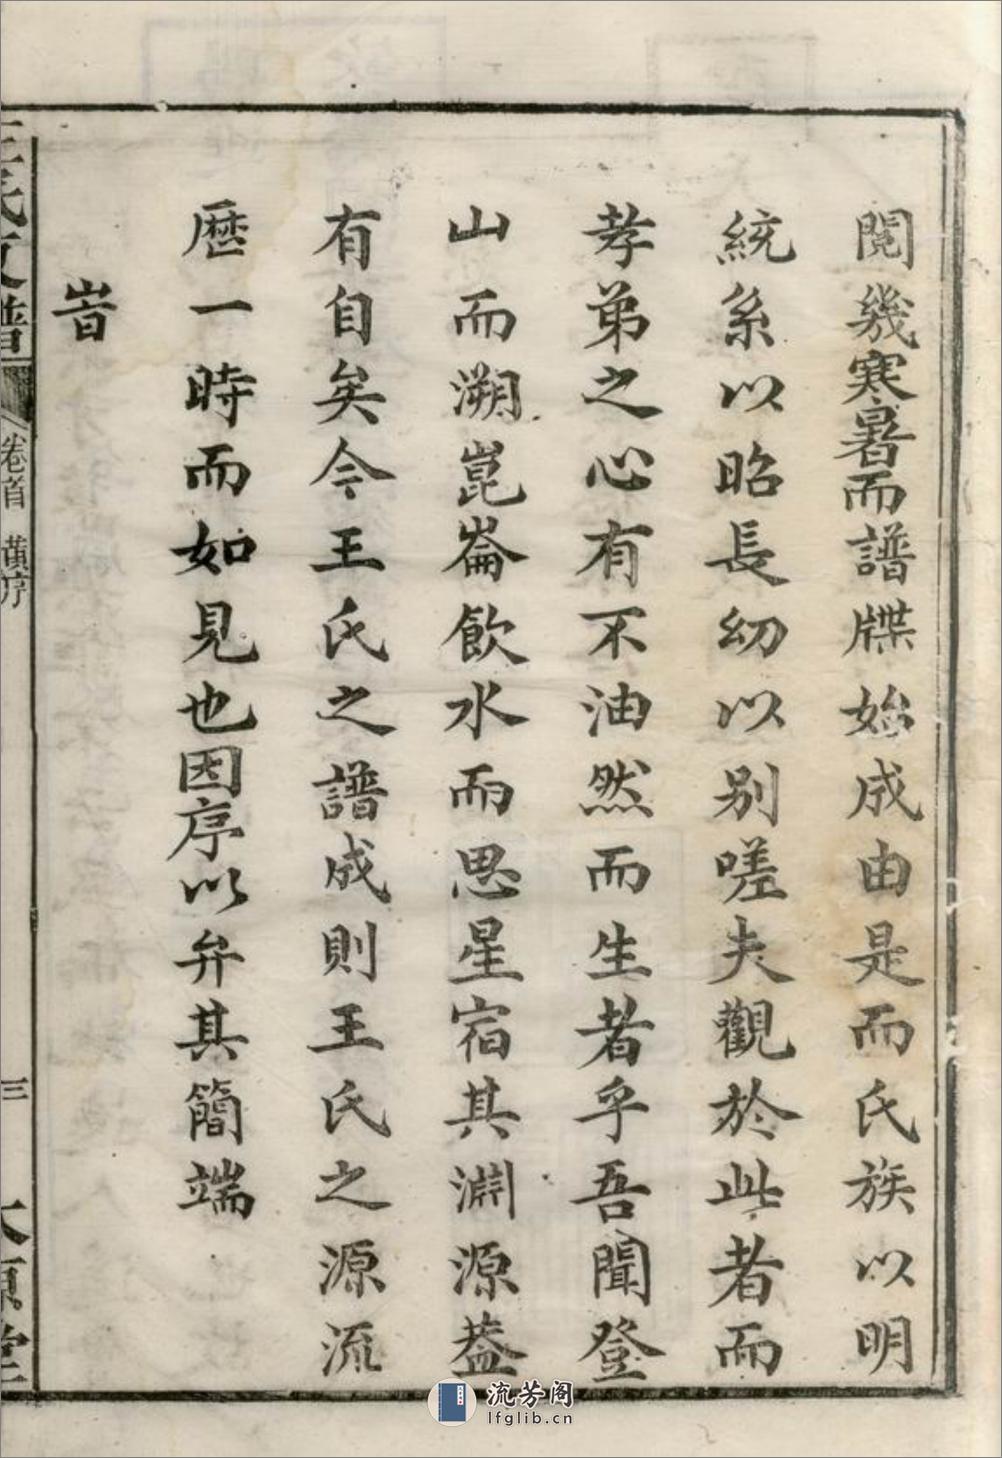 閱幾寒暑而譜牒始成由是而氏族以明
統系以昭長幼以别嗟夫觀於此者而
孝弟之心有不油然而生者乎吾聞登
山而溯崑崙飲水而思星宿其淵源葢
有自矣今王氏之譜成則王氏之源流
歷一時而如見也因序以弁其簡端
旹
氏 譜 卷首 黃序 三
流芳阁
lfglib.cn